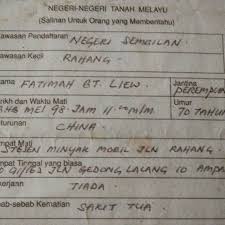 NEGERI-NEGERI TANAH MELAYU
(Salinan Untuk Orang yang Memberitahu)
awasan Pendaftaran NEGERI SEMBILAN
awasan Kecil RAHANG
ama FATIMAH BT. LIEW Jantina PEREMPUAN
rikh dan Waktu Mati MEI 98-JAM 11 Umur 70 TAHUN
turunan CHINA
mpat Mati STESEN MINYAK MOBIL JLN RAHANG
mpat Tinggal yang biasa JLN GEDONG LALANG 10 AMPA
kerjaan TIADA
ab-sebab Kematian SAKIT TUA